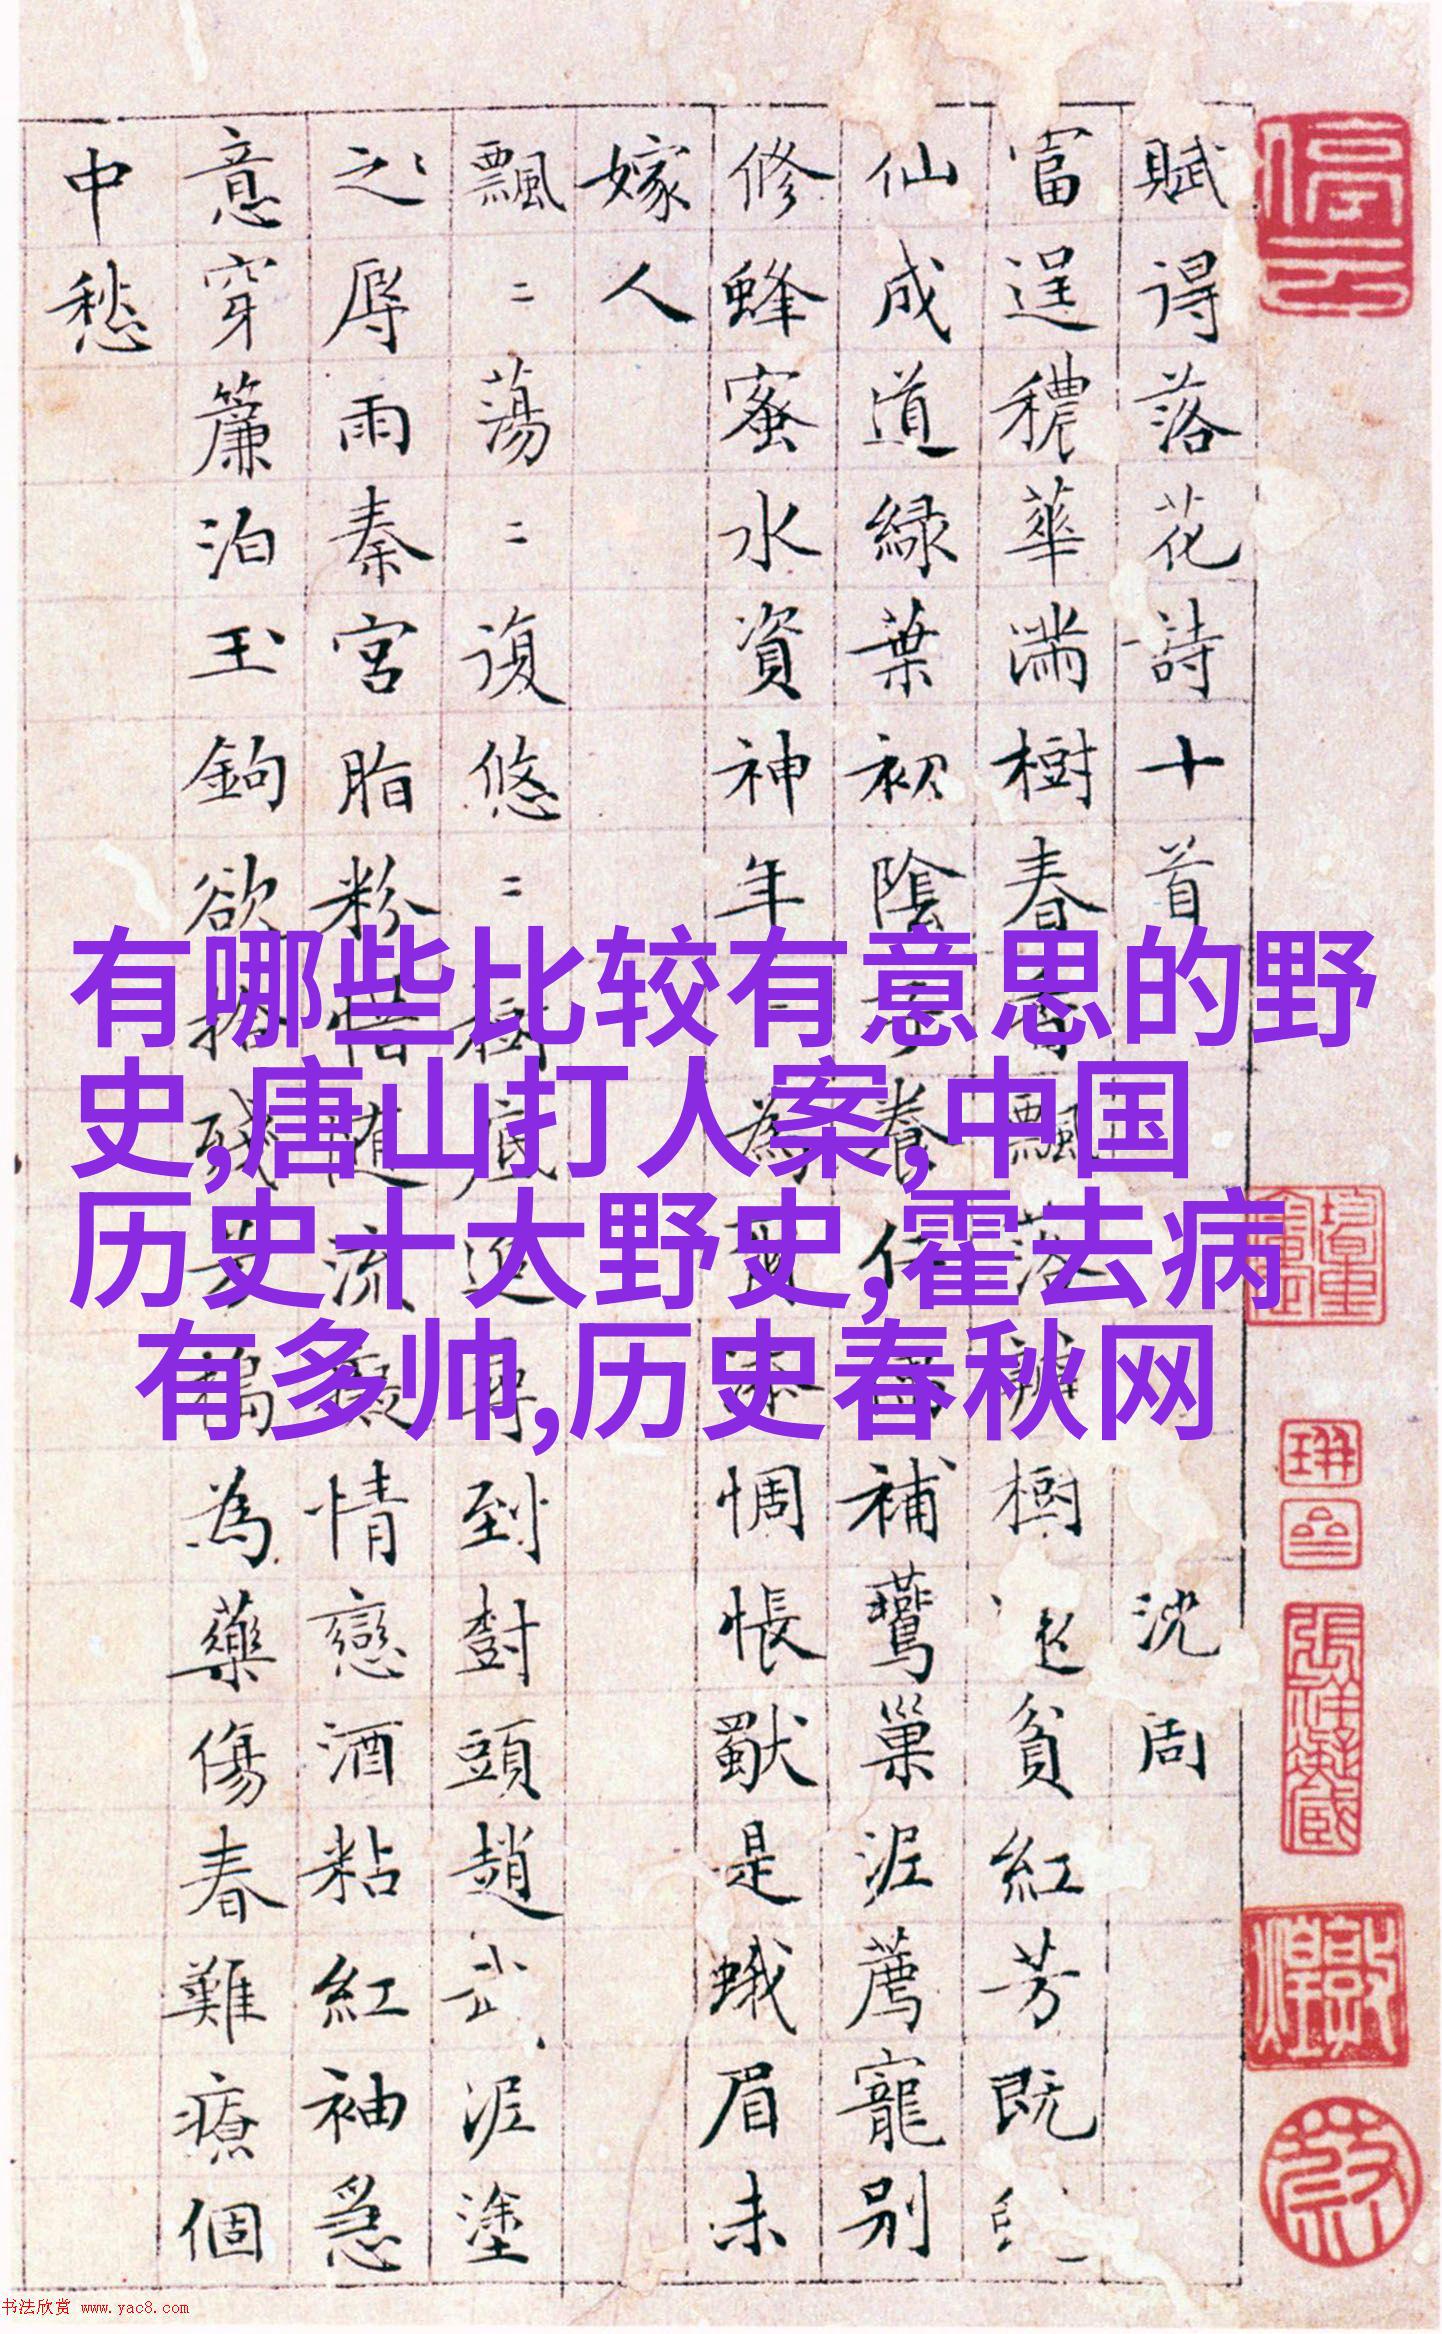 有哪些比较有意思的野
史,唐山打人案,中国
历史十大野史,霍去病
有多帅,历史春秋网
賦得落花詩十首 沈周
富逞穠華滿樹春 飄落 樹 貧紅芳既
仙成道綠葉初陰子養仁 補鶯巢泥薦寵別
修蜂蜜水資神年 為 添惆悵獸是蛾眉未
嫁人
飄=蕩=復悠=樹底追尋到樹頭趙武泥塗
之辱雨秦宮脂粉惜隨流癡情戀酒粘紅袖急
意穿簾泊玉鉤欲拾殘芳搗為藥傷春難療個
中愁
停云
敦煌
书法欣赏 www.yac8.com